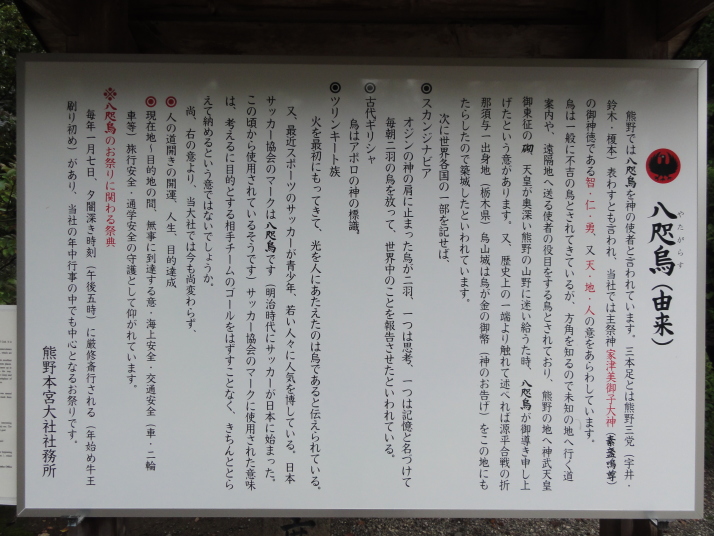 八咫烏(由来)
やたがらす
熊野では八咫烏を神の使者と言われています。三本足とは熊野三党(宇井・
鈴木・榎本)表わすとも言われ、当社では主祭神家津美御子大神(素盞嗚尊)
の御神徳である智・仁・勇、又天・地・人の意をあらわしています。
烏は一般に不吉の鳥とされてきているが、方角を知るので未知の地へ行く道
案内や、遠隔地へ送る使者の役目をする鳥とされており、熊野の地へ神武天皇
御東征の砌、天皇が奥深い熊野の山野に迷い給うた時、八咫烏が御導き申し上
げたという意があります。又、歴史上の一端より触れて述べれば源平合戦の折
那須与一出身地(栃木県)烏山城は烏が金の御幣(神のお告げ)をこの地にも
たらしたので築城したといわれています。
次に世界各国の一部を記せば、
◉スカンジナビア
オジンの神の肩に止まった烏が二羽、一つは思考、一つは記憶と名づけて
毎朝二羽の烏を放って、世界中のことを報告させたといわれている。
◉古代ギリシャ
烏はアポロの神の標識。
◉ツリンキート族
火を最初にもってきて、光を人にあたえたのは烏であると伝えられている。
又、最近スポーツのサッカーが青少年、若い人々に人気を博している。日本
サッカー協会のマークは八咫烏です(明治時代にサッカーが日本に始まった。
この頃から使用されているそうです)サッカー協会のマークに使用された意味
は、考えるに目的とする相手チームのゴールをはずすことなく、きちんととら
えて納めるという意ではないでしょうか。
尚、右の意より、当大社では今も尚変わらず、
◉人の道開きの開運、人生、目的達成
◉現在地〜目的地の間、無事に到達する意・海上安全・交通安全(車・二輪
車等)旅行安全・通学安全の守護として仰がれています。
※八咫烏のお祭りに関わる祭典
毎年一月七日、夕闇深き時刻(午後五時)に厳修斎行される(年始め牛王
刷り初め)があり、当社の年中行事の中でも中心となるお祭りです。
熊野本宮大社社務所